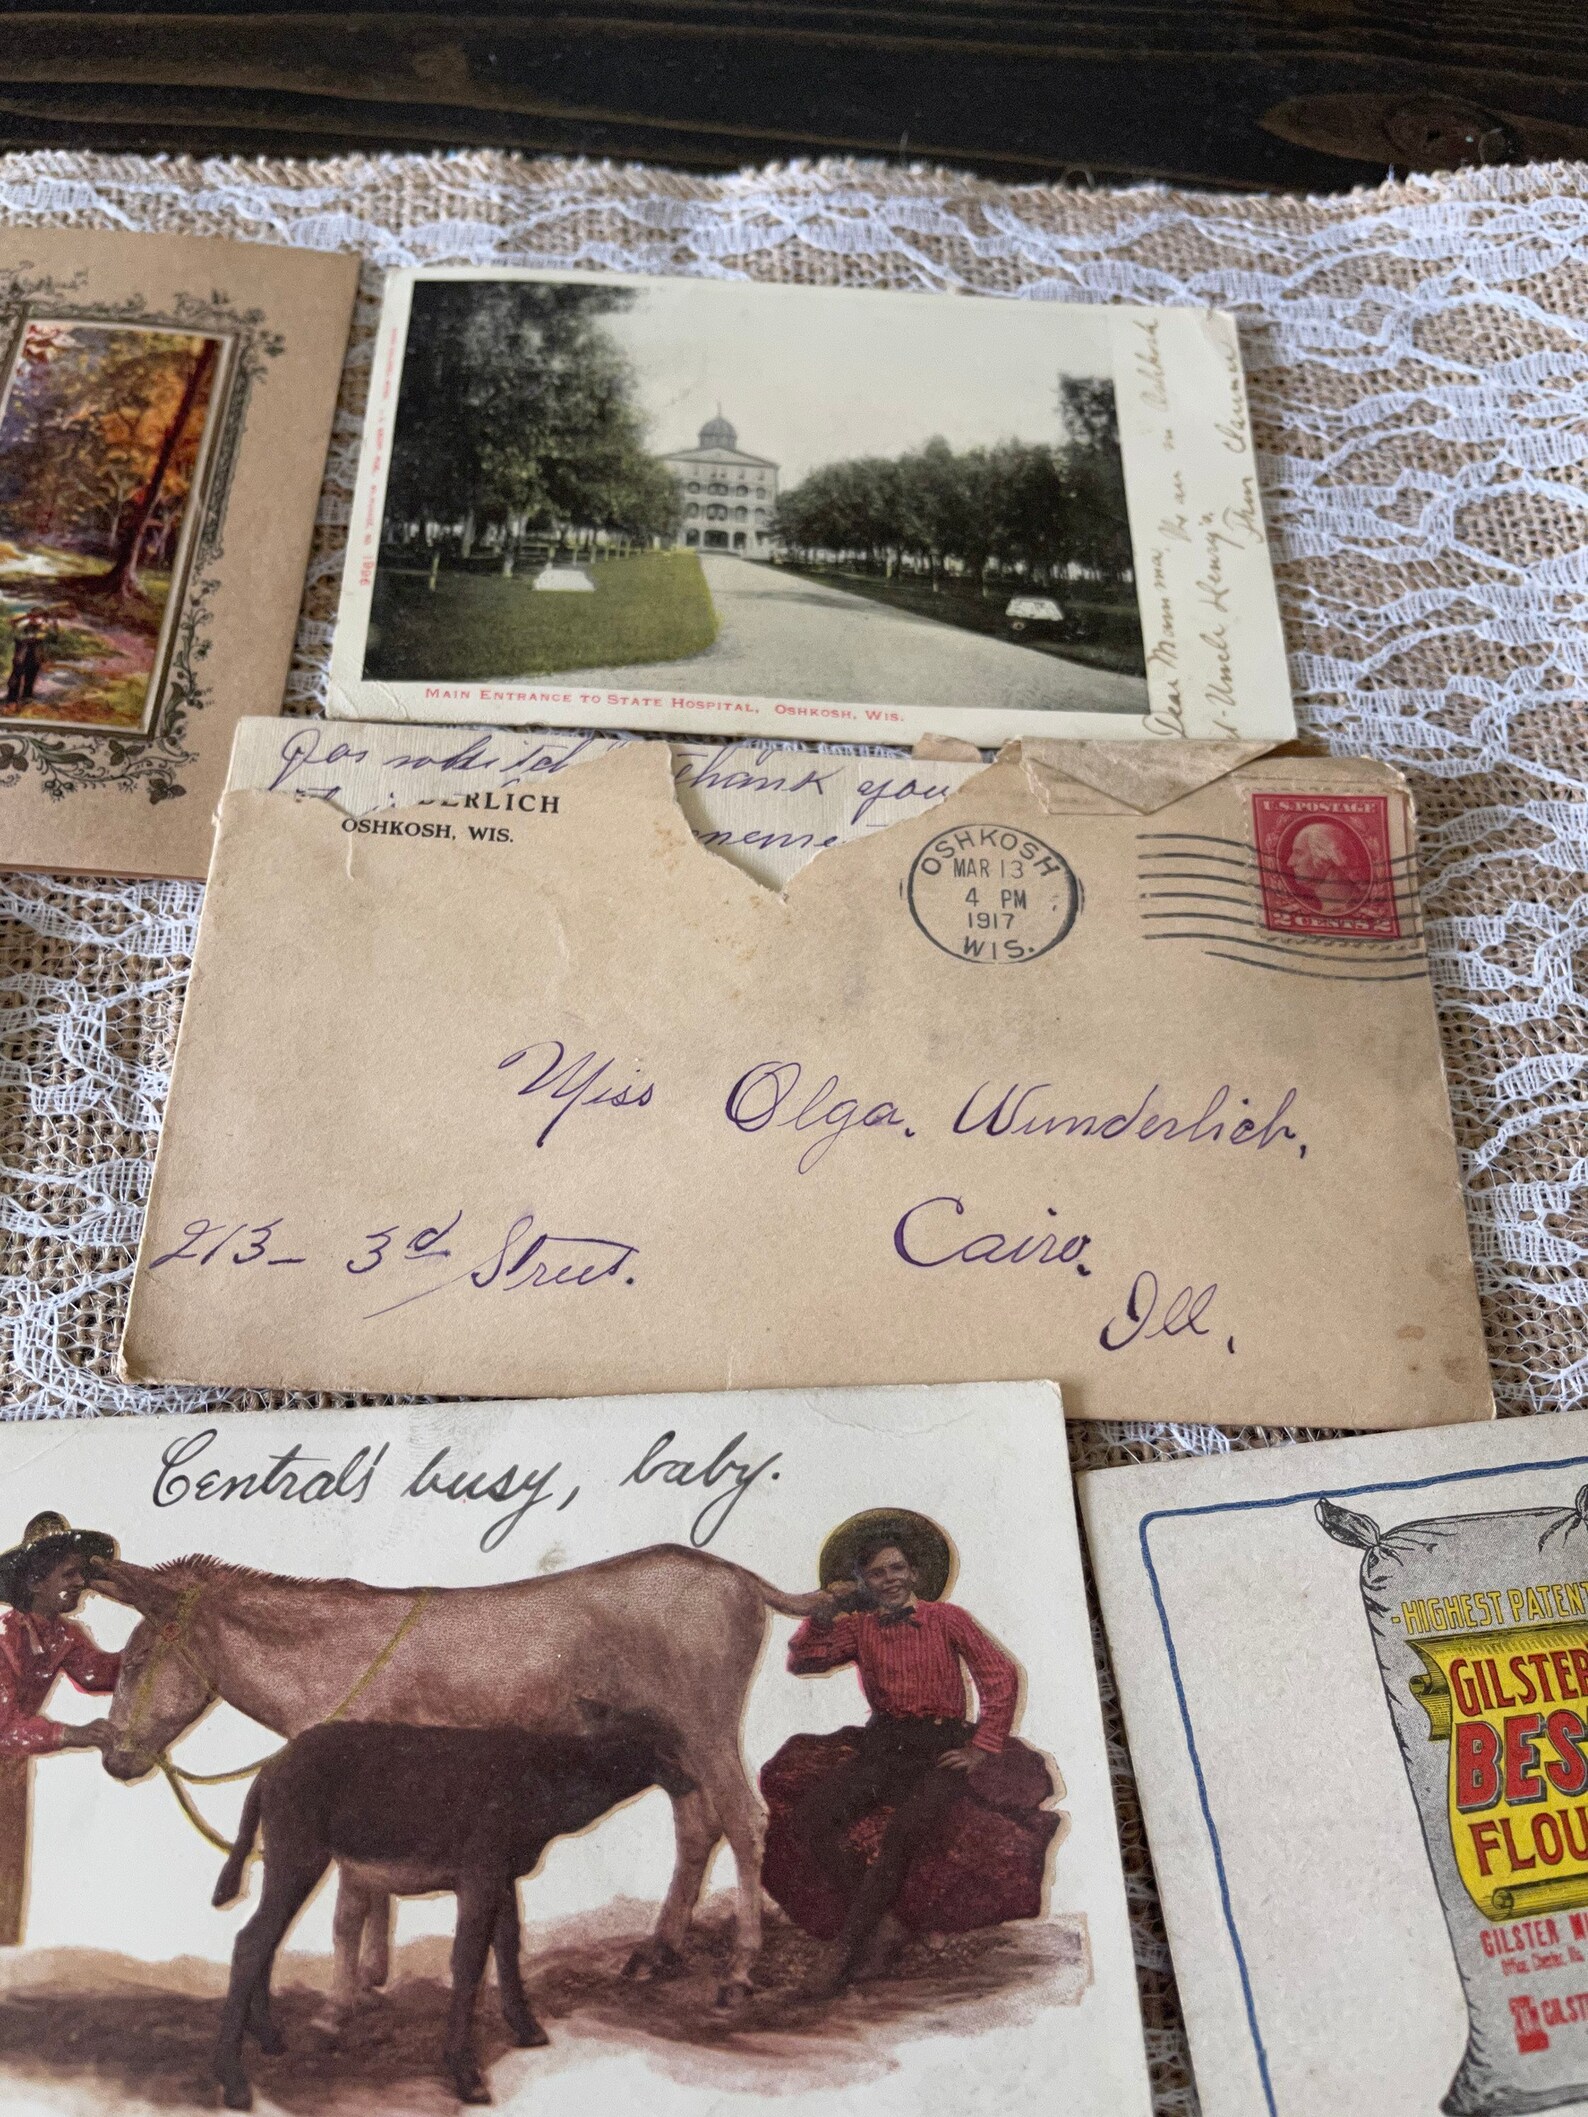 MAIN ENTRANCE TO STATE HOSPITAL, OSHKOSH, WIS.
Dear Mamma, We are in Oshkosh
at Uncle Henry's.
Thank you
DERLICH
OSHKOSH, WIS.
OSHKOSH
MAR 13
4 PM
1917
WIS.
U.S. POSTAGE
2 CENTS 2
Miss Olga Wunderlich,
213 - 3d Street.
Cairo,
Ill.
Central's busy, baby.
-HIGHEST PATENT
GILSTER
BES
FLOU
GILSTER MI
Office, Chester, Ill.
GILST